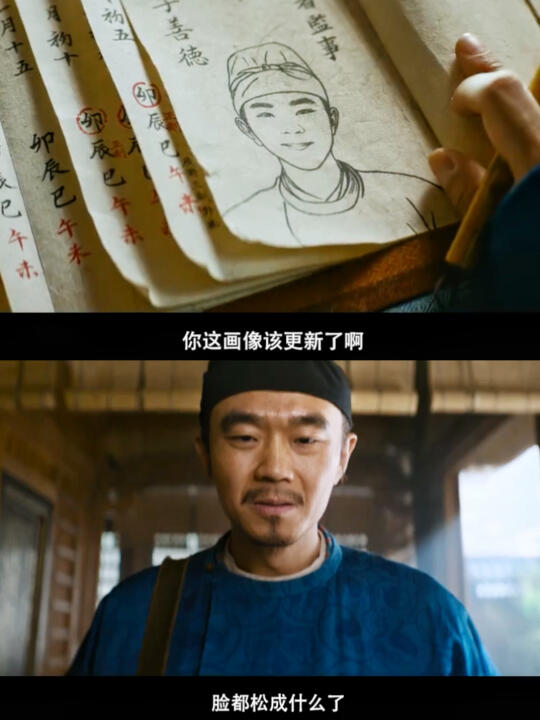 署監事
李善德
卯辰巳午未
初五
卯辰巳午
月初十
卯辰巳午
月十五
卯辰巳午未
巳午未
你这画像该更新了啊
脸都松成什么了